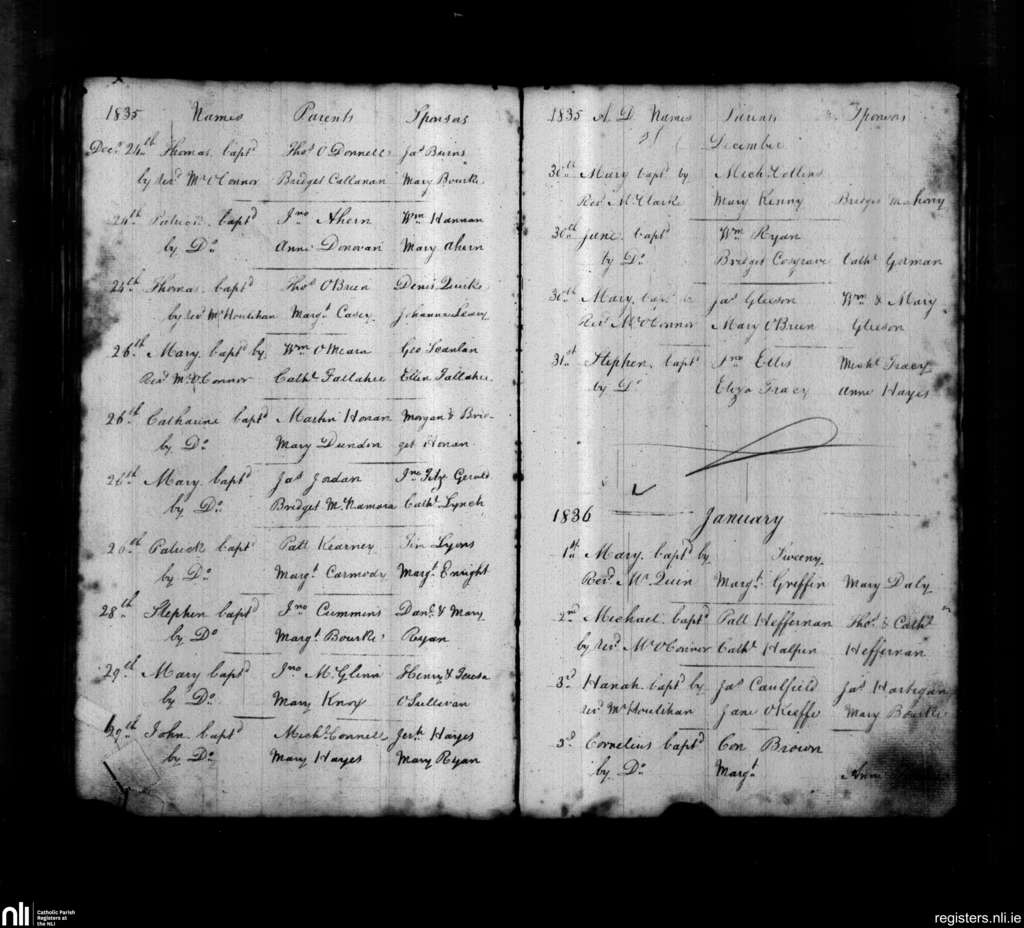 1835 Names Parents Sponsors
Decr. 24th Thomas baptd Thos O Donnell Jas Burns
by Revd Mr O'Connor Bridget Callanan Mary Bourke
24th Patrick baptd Jno Ahern Wm Hannan
by Do Anne Donovan Mary Ahern
24th Thomas baptd Thos O'Brien Denis Quirke
by revd Mr Houlihan Margt Casey Johanna
26th Mary baptd by Wm O'Meara Geo Scanlan
Revd Mr O'Connor Cathe Fallahee Ellen Fallahee
26th Catharine baptd Martin Honan Morgan & Brid-
by Do Mary Dundon get Honan
26th Mary baptd Jas Jordan Jno Fitz Gerald
by Do Bridget McNamara Cathe Lynch
26th Patrick baptd Patt Kearney Tim Lyons
by Do Margt Carmody Margt Enright
28th Stephen baptd Jno Cummins Danl & Mary
by Do Margt Bourke Ryan
29th Mary baptd Jno McGlinn Henry & Teresa
by Do Mary Knox O'Sullivan
29th John baptd Michl Connell Jerh Hayes
by Do Mary Hayes Mary Ryan
1835 A D Names Parents Sponsors
December
30th Mary baptd by Mich Collins
Revd Mr Clarke Mary Kenny Bridget Mahony
30th June baptd Wm Ryan
by Do Bridget Cosgrave Cathe Gorman
30th Mary baptd by Jas Gleeson Wm & Mary
Revd Mr O'Connor Mary O'Brien Gleeson
31st Stephen baptd Jno Ellis Michl Tracy
by Do Eliza Tracy Anne Hayes
1836 January
1st Mary baptd by Sweeny
Revd Mr Quin Margt Griffin Mary Daly
2nd Michael baptd Patt Heffernan Thos & Cathe
by revd Mr O'Connor Cathe Halpin Heffernan
3d Hanah baptd by Jas Caulfield Jas Hartigan
revd Mr Houlihan Jane O'Keeffe Mary Bourke
3d Cornelius baptd Con Brown
by Do Margt Anne
nli Catholic Parish
Registers at
the NLI
registers.nli.ie